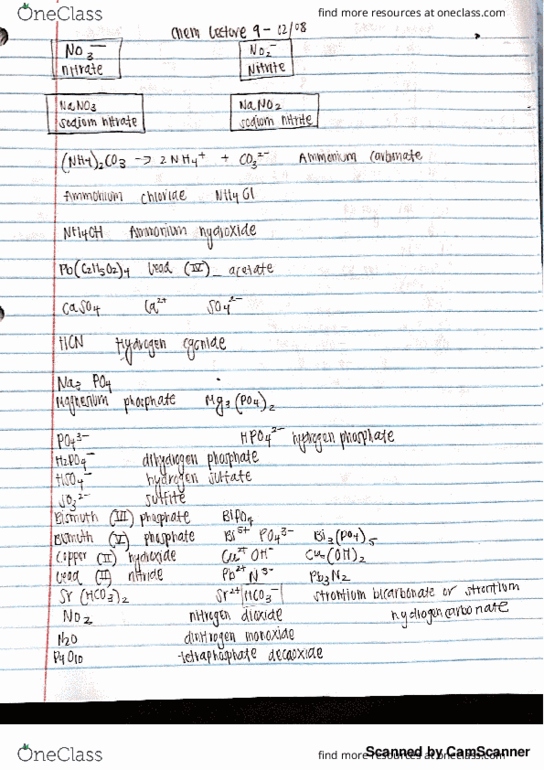 OneClass find more resources at oneclass.com
Chem Lecture 9 - 02/08
NO3⁻ NO2⁻
nitrate Nitrite
NaNO3 NaNO2
sodium nitrate sodium nitrite
(NH4)2CO3 → 2NH4⁺ + CO3²⁻ Ammonium carbonate
Ammonium chloride NH4Cl
NH4OH Ammonium hydroxide
Pb(C2H3O2)4 Lead (IV) acetate
CaSO4 Ca²⁺ SO4²⁻
HCN Hydrogen cyanide
Na3 PO4
Magnesium phosphate Mg3(PO4)2
PO4³⁻ HPO4²⁻ hydrogen phosphate
H2PO4⁻ dihydrogen phosphate
HSO4⁻ hydrogen sulfate
SO3²⁻ sulfite
Bismuth (III) phosphate
Bismuth (V) phosphate Bi⁵⁺ PO4³⁻ Bi3(PO4)5
Copper (II) hydroxide Cu²⁺ OH⁻
Lead (II) nitride Pb²⁺ N³⁻ Pb3N2
Sr(HCO3)2 Sr²⁺ HCO3⁻ strontium bicarbonate or strontium
hydrogen carbonate
NO2 nitrogen dioxide
N2O dinitrogen monoxide
P4O10 tetraphosphate decaoxide
Scanned by CamScanner
OneClass find more resources at oneclass.com